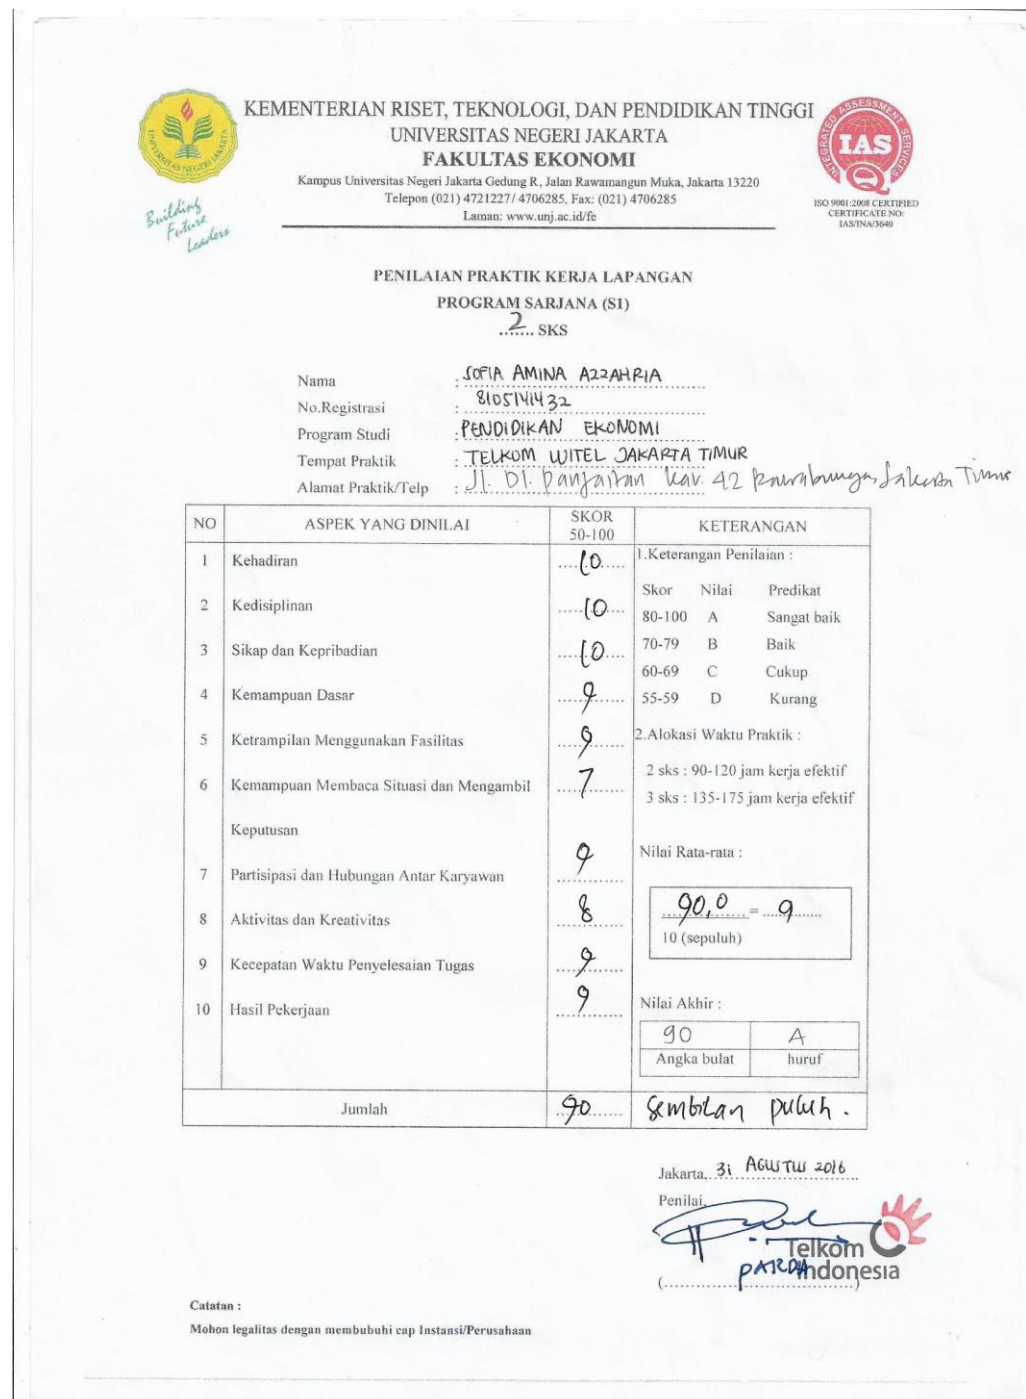 KEMENTERIAN RISET, TEKNOLOGI, DAN PENDIDIKAN TINGGI
UNIVERSITAS NEGERI JAKARTA
FAKULTAS EKONOMI
Kampus Universitas Negeri Jakarta Gedung R, Jalan Rawamangun Muka, Jakarta 13220
Telepon (021) 4721227/ 4706285, Fax: (021) 4706285
Laman: www.unj.ac.id/fe
UNIVERSITAS NEGERI JAKARTA
Building
Future
Leaders
INTEGRATED ASSESSMENT SERVICES
IAS
ISO 9001:2008 CERTIFIED
CERTIFICATE NO:
IAS/INA/3640
PENILAIAN PRAKTIK KERJA LAPANGAN
PROGRAM SARJANA (S1)
...2... SKS
Nama : SOFIA AMINA AZZAHRIA
No.Registrasi : 8105141432
Program Studi : PENDIDIKAN EKONOMI
Tempat Praktik : TELKOM WITEL JAKARTA TIMUR
Alamat Praktik/Telp : Jl. DI. Panjaitan kav. 42 Jakarta Timur
NO ASPEK YANG DINILAI SKOR 50-100 KETERANGAN
1 Kehadiran 10
2 Kedisiplinan 10
3 Sikap dan Kepribadian 10
4 Kemampuan Dasar 9
5 Ketrampilan Menggunakan Fasilitas 9
6 Kemampuan Membaca Situasi dan Mengambil 7
Keputusan
7 Partisipasi dan Hubungan Antar Karyawan 9
8 Aktivitas dan Kreativitas 8
9 Kecepatan Waktu Penyelesaian Tugas 9
10 Hasil Pekerjaan 9
1.Keterangan Penilaian :
Skor Nilai Predikat
80-100 A Sangat baik
70-79 B Baik
60-69 C Cukup
55-59 D Kurang
2.Alokasi Waktu Praktik :
2 sks : 90-120 jam kerja efektif
3 sks : 135-175 jam kerja efektif
Nilai Rata-rata :
90,0 = 9
10 (sepuluh)
Nilai Akhir :
90 A
Angka bulat huruf
Jumlah 90 Sembilan puluh.
Jakarta, 31 AGUSTUS 2016
Penilai,
Telkom
Indonesia
(PARDA)
Catatan :
Mohon legalitas dengan membubuhi cap Instansi/Perusahaan